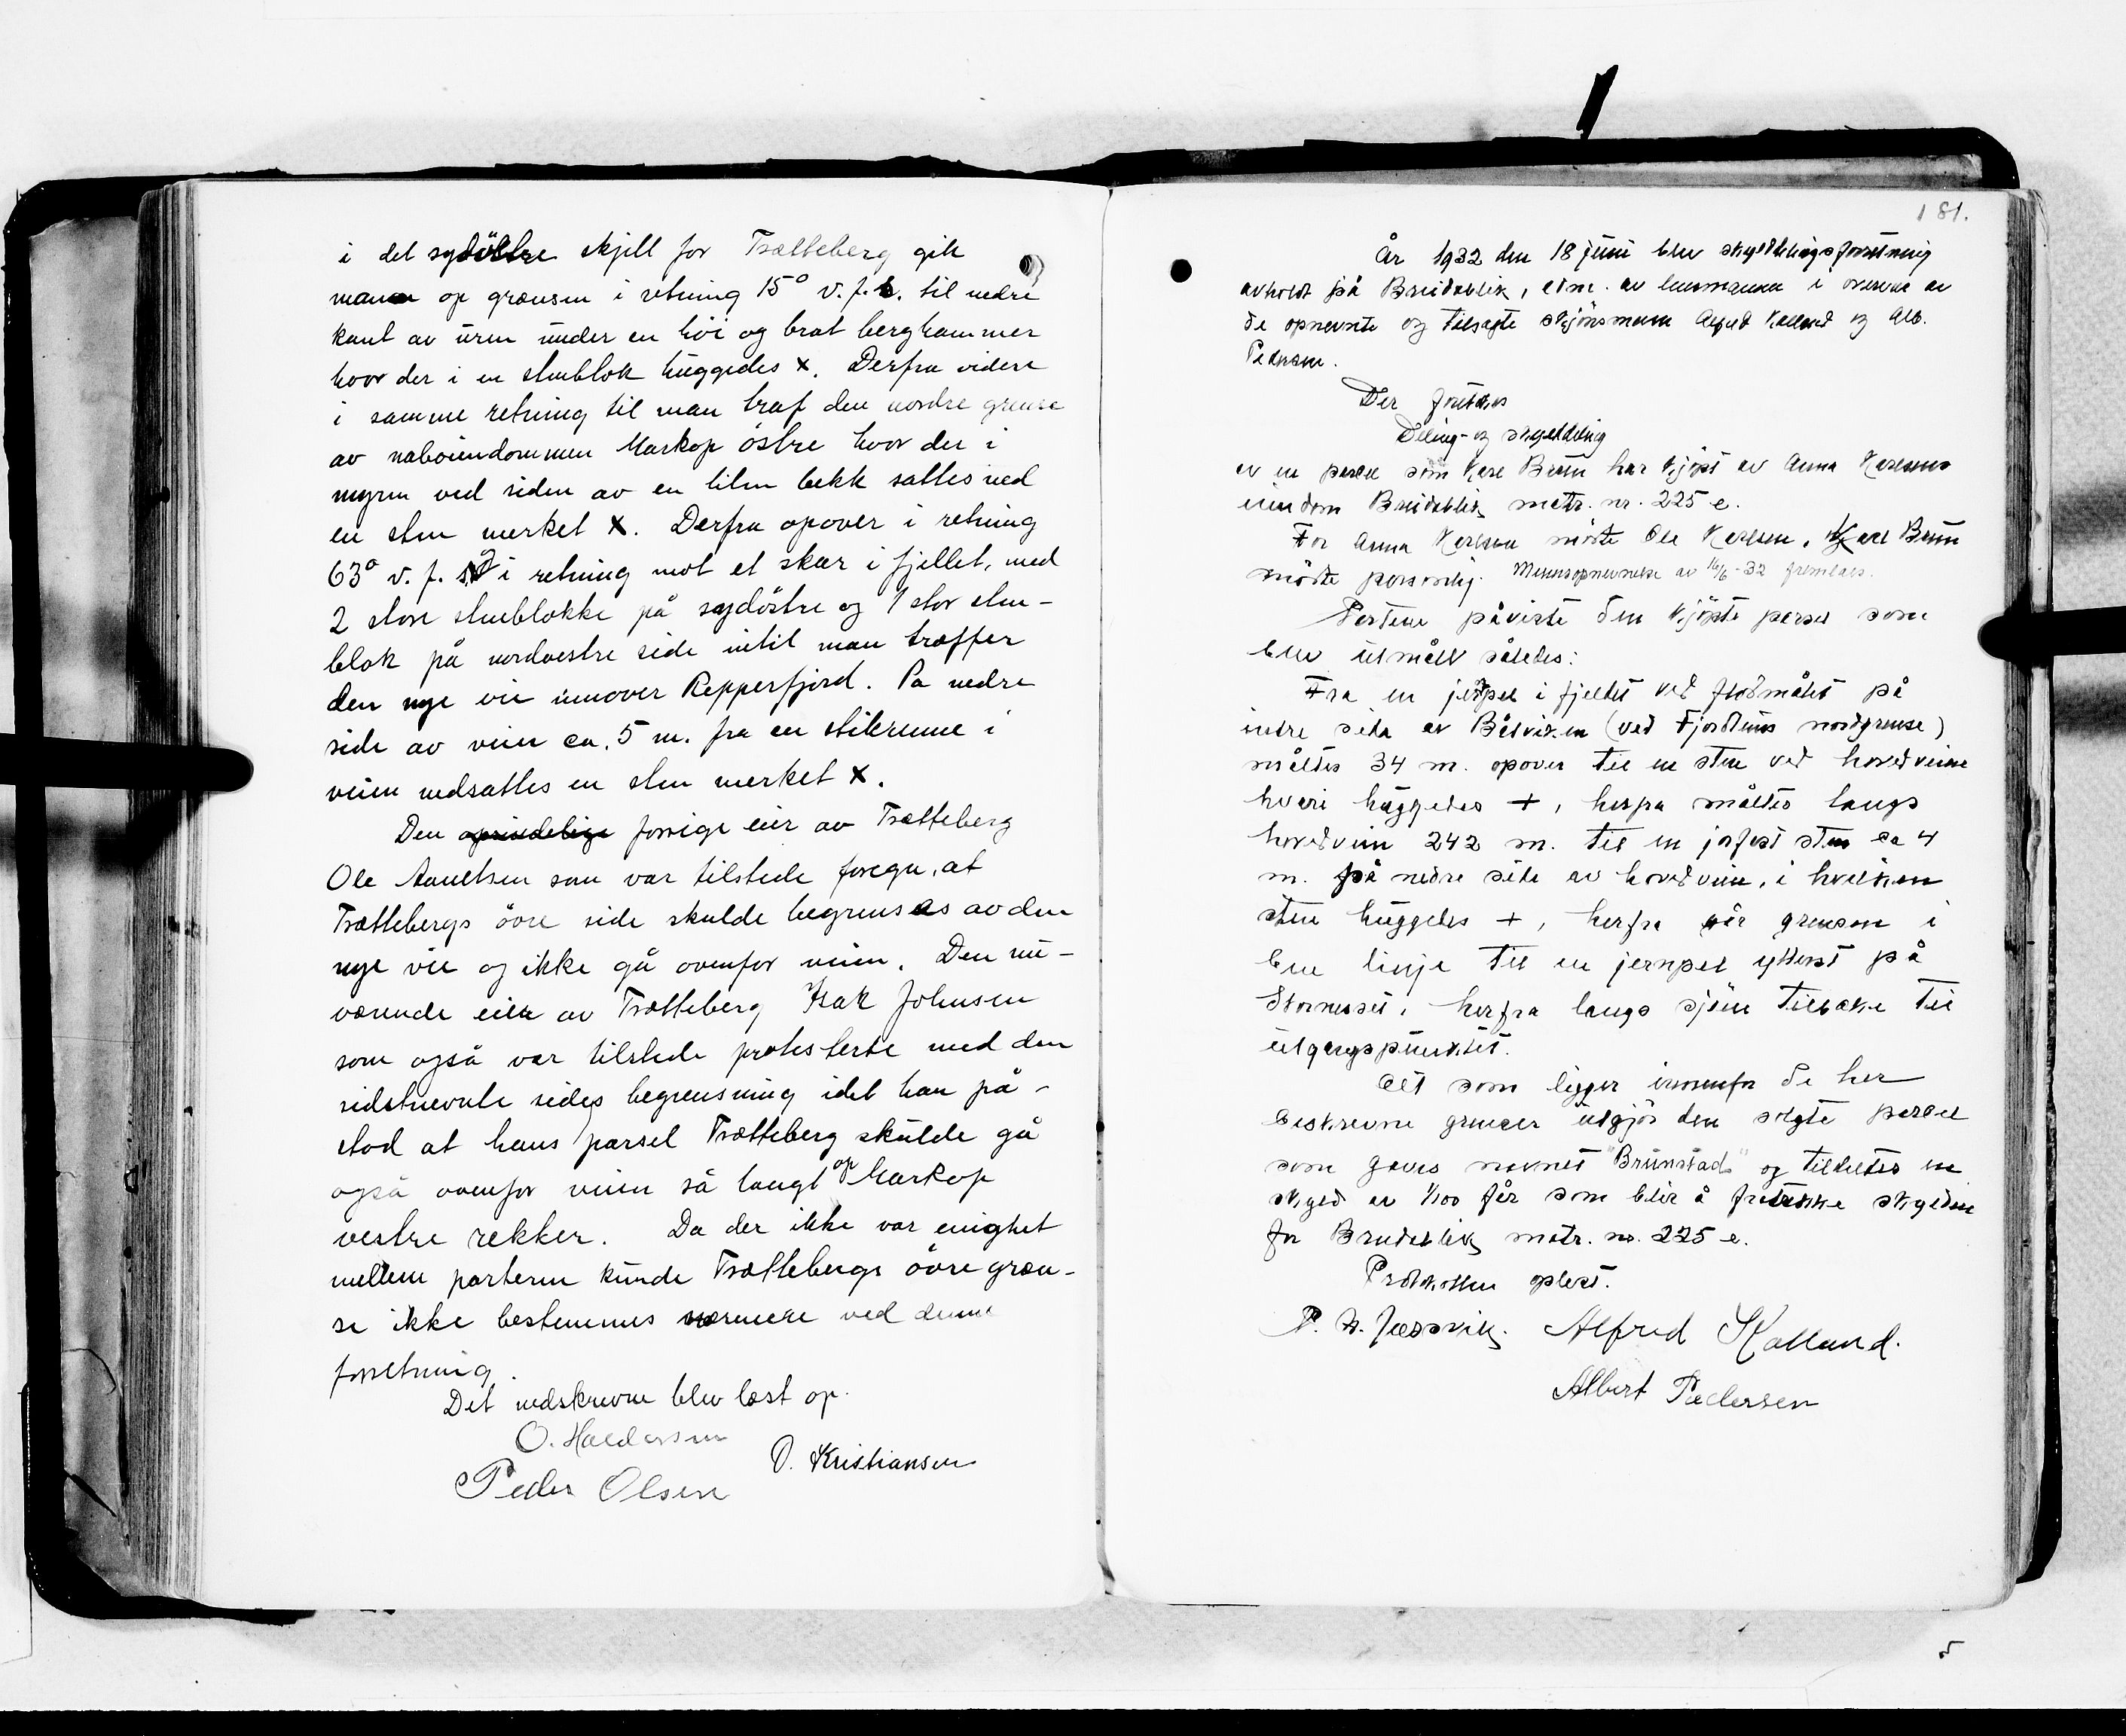 i det sydöstre skjell for Trætteberg gik
man op grænsen i retning 15° v.f.s. til nedre
kant av uren under en höi og brat berghammer
hvor der i en stenblok huggedes x. Derfra videre
i samme retning til man traf den nordre grense
av naboiendommen Markop östre hvor der i
myren ved siden av en liten bekk sattes ned
en sten merket x. Derfra opover i retning
63° v.f. i retning mot et skar i fjellet, med
2 store stenblokke på sydöstre og 1 stor sten-
blok på nordvestre side intil man træffer
den nye vei innover Repperfjord. Pa nedre
side av veien ca. 5 m. fra en stikrenne i
veien nedsattes en sten merket x.
Den oprindelige forrige eier av Trætteberg
Ole som var tilstede foregn, at
Trættebergs övre side skulde begrenses av den
nye vei og ikke gå ovenfor veien. Den nu-
værende eier av Trætteberg Isak Johnsen
som også var tilstede protesterte med den
sidstnevnte sides begrensning idet han på-
stod at hans parsel Trætteberg skulde gå
også ovenfor veien så langt op Markop
vestre rekker. Da der ikke var enighet
mellem parterne kunde Trættebergs övre græn-
se ikke bestemmes nærmere ved denne
forretning.
Det nedskrevne blev læst op.
O. Haldorsen
O. Kristiansen
Peder Olsen
181.
År 1932 den 18 juni blev skylddelingsforretning
avholdt på Breidablik, av lensmannen i overvær av
de opnevnte og tilsagte skjönsmenn Alfred Kolland og Alb.
Pedersen.
Der foretokes
Deling- og skylddeling
av en parsel som Kare Brun har kjöpt av Anna Karlsens
eiendom Breidablik matr. nr. 225 e.
For Anna Karlsen mötte Ole Karlsen. Kare Brun
mötte personlig. Mennsopnevnelse av 16/6-32 fremlaes.
Partene påviste den kjöpte parsel som
blev utmålt således:
Fra en jernpel i fjellet ved flodmålet på
indre side av Båtviken (ved Fjordtuns nordgrense)
måltes 34 m. opover til en sten ved hovedveien
hvori huggedes +, herfra måltes langs
hovedveien 242 m. til en jofast sten ca 4
m. på nedre side av hovedveien, i hvilken
sten huggedes +, herfra går grensen i
bene linje til en jernpel ytterst på
Stornesset, herfra langs sjöen tilbake til
utgangspunktet.
Alt som ligger innenfor de her
beskrevne grenser utgjör den solgte parsel
som gaves navnet "Brunstad" og tildeltes en
skyld av 1/100 får som blir å fratrekke skylden
for Breidablik matr. nr. 225 e.
Protokollen oplest.
P. N. Jæsvik. Alfred Kolland.
Albert Pedersen
5